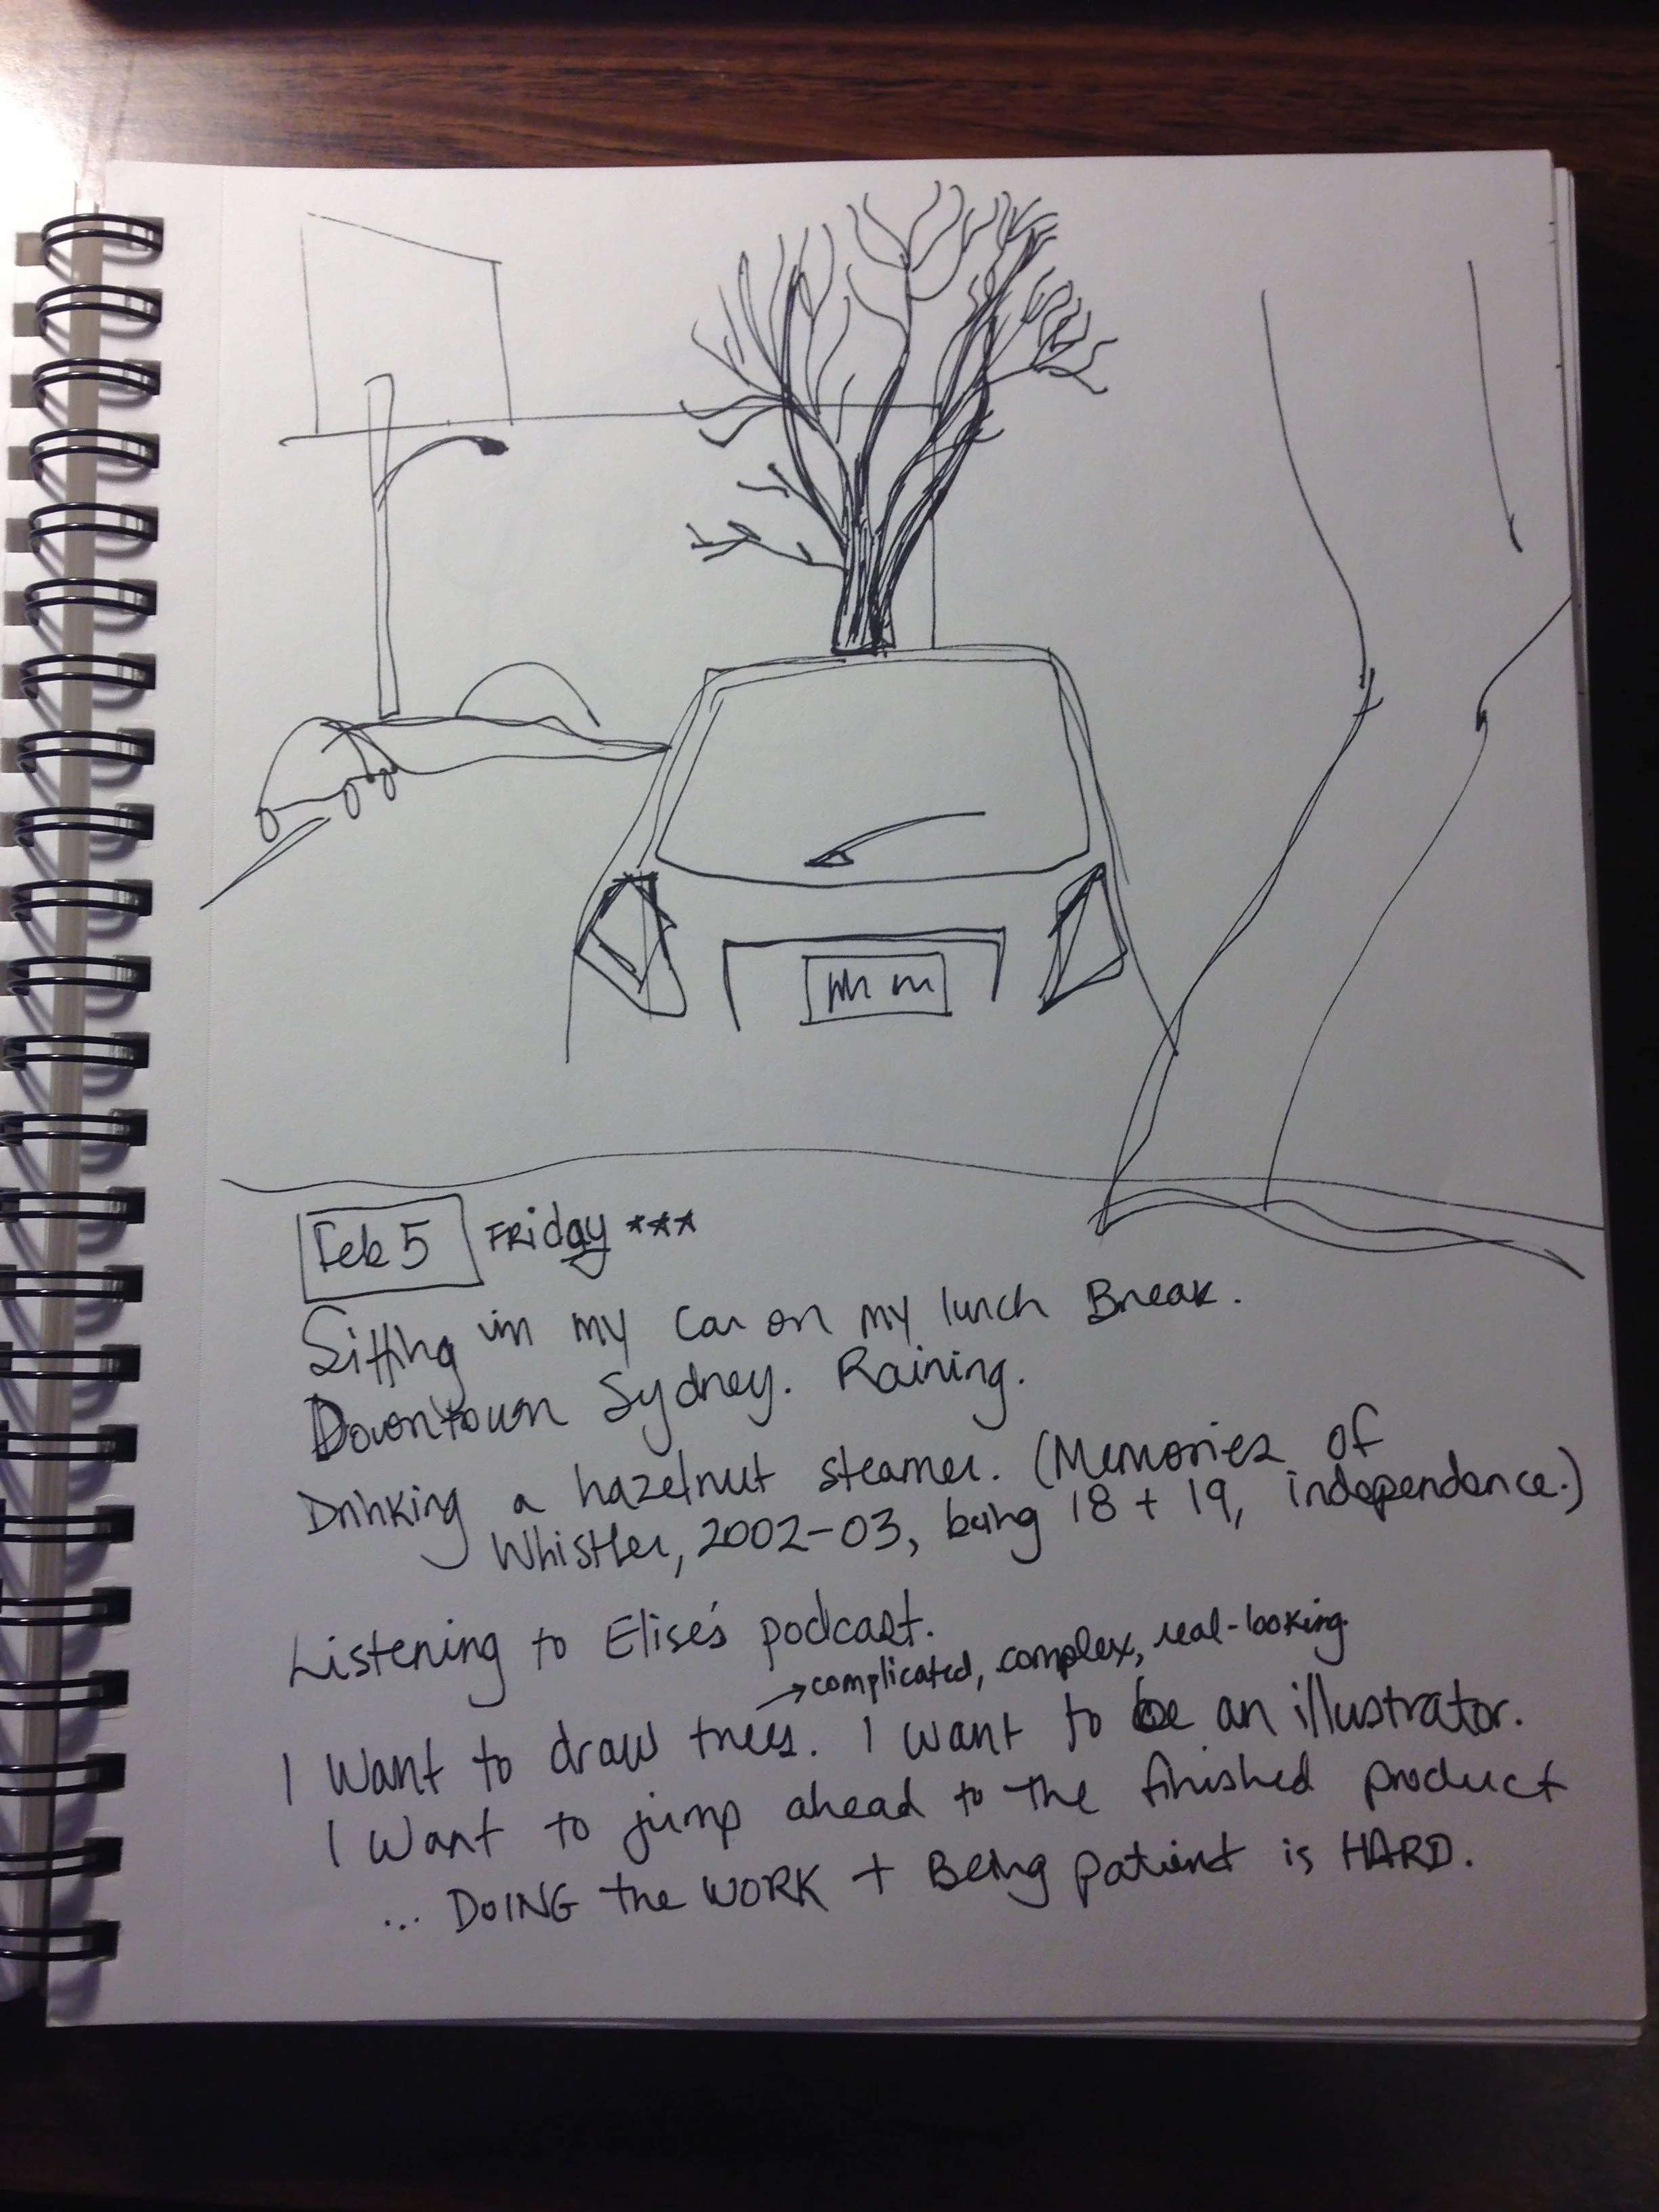 Feb 5 FRiday ***
Sitting in my car on my lunch Break.
Downtown Sydney. Raining.
Drinking a hazelnut steamer. (Memories of
Whistler, 2002-03, being 18 + 19, independence.)
Listening to Elise's podcast.
→complicated, complex, real-looking.
I want to draw trees. I want to be an illustrator.
I want to jump ahead to the finished product
... DOING the WORK + Being patient is HARD.